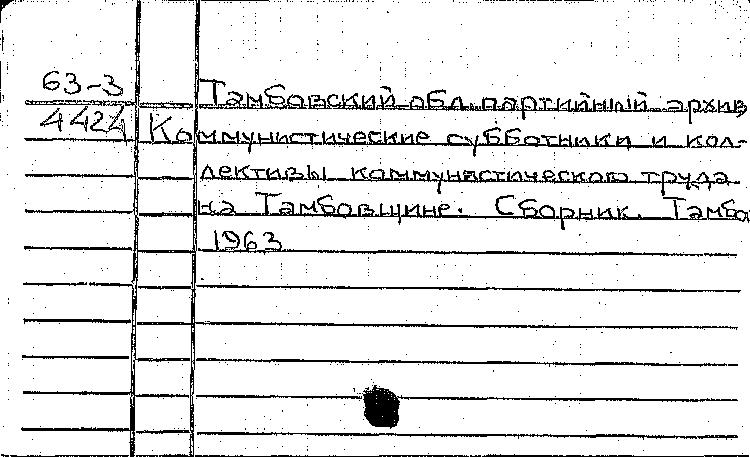 63-3 Тамбовский обл. партийный архив
4424 Коммунистические субботники и кол-
лективы коммунистического труда
на Тамбовщине. Сборник. Тамбо
1963